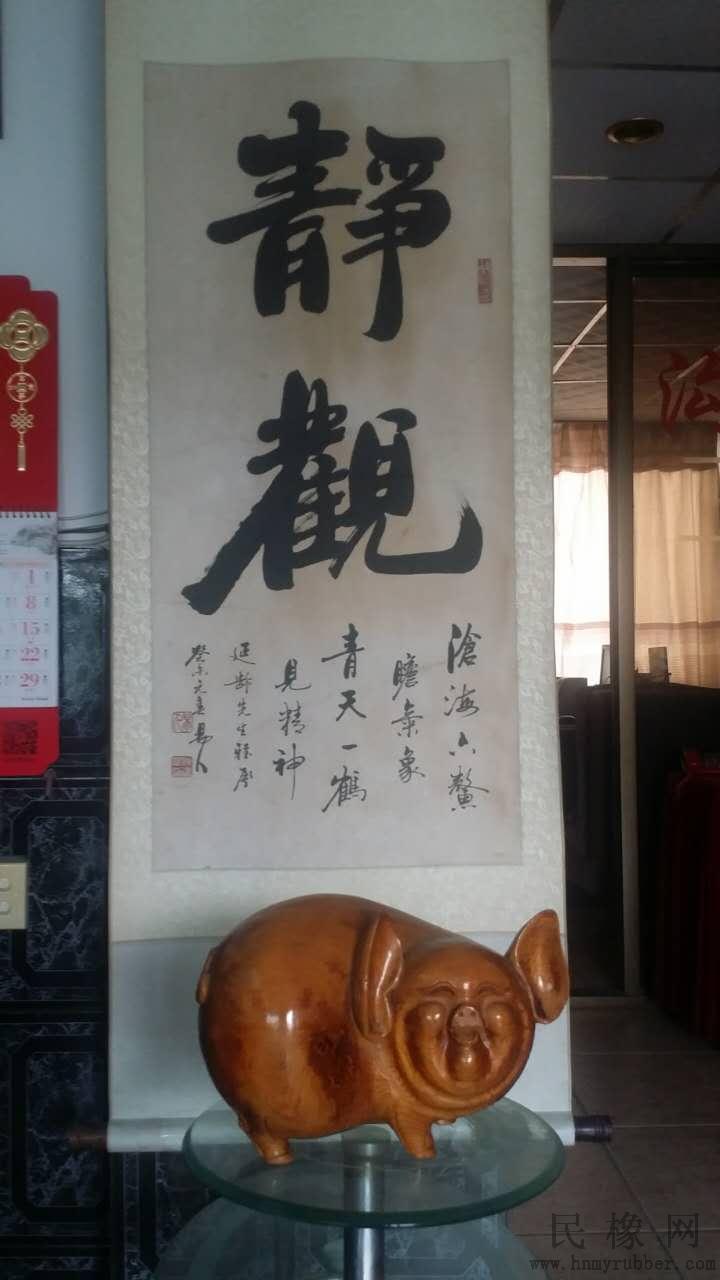 靜
觀
滄海六鰲
瞻氣象
青天一鶴
見精神
延齡先生雅屬
癸未元直易人
1
8
15
22
29
民橡网
www.hnmyrubber.com